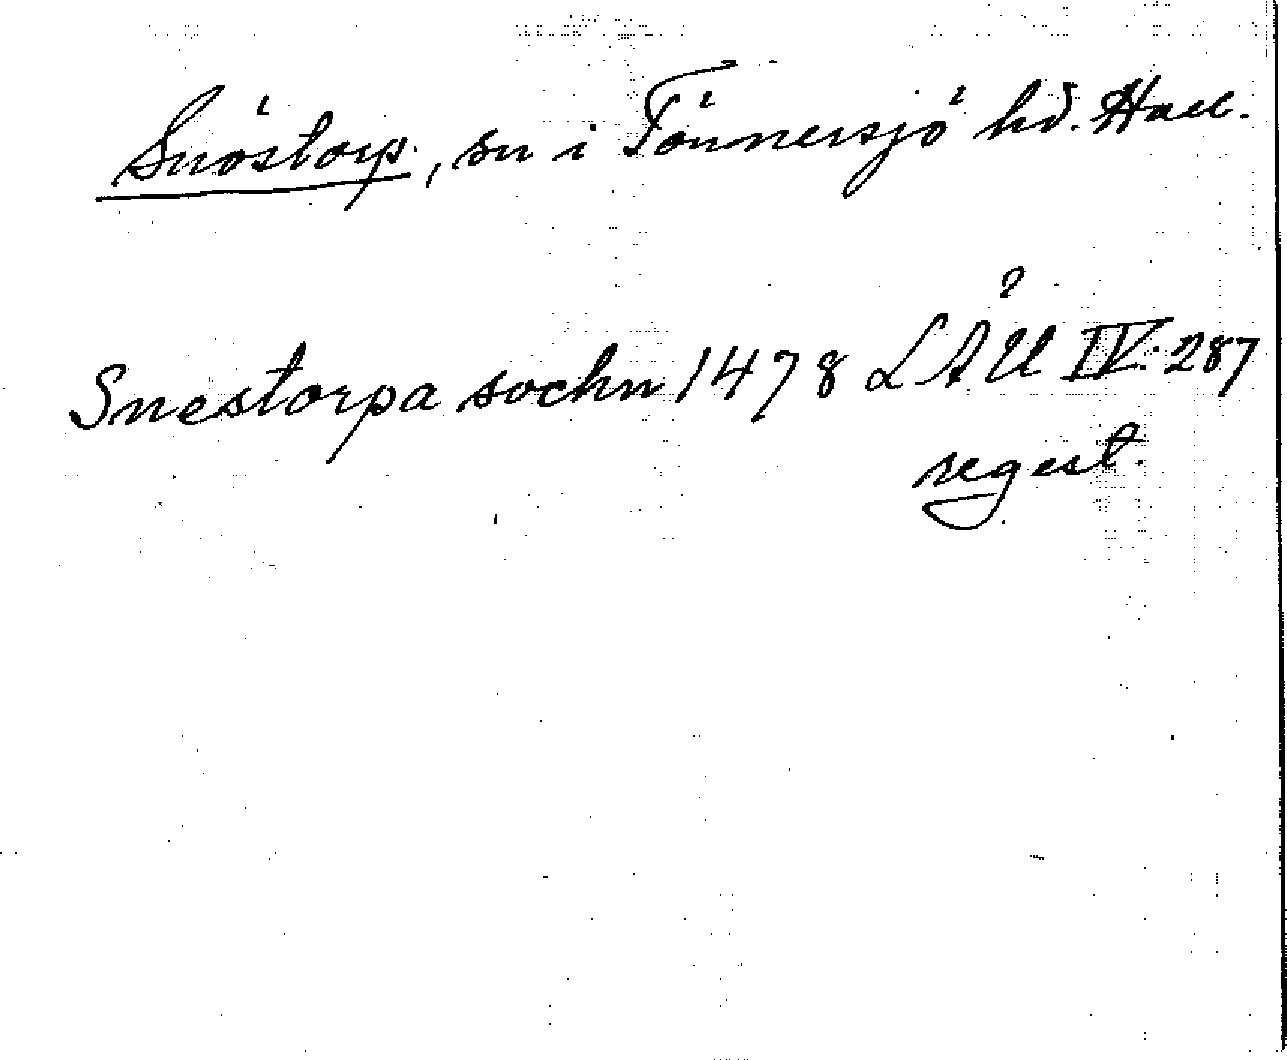 Snöstorp, sn i Tönnersjö hd. Hall.
Snestorpa sochn 1478 LÅU IV: 287
regest.